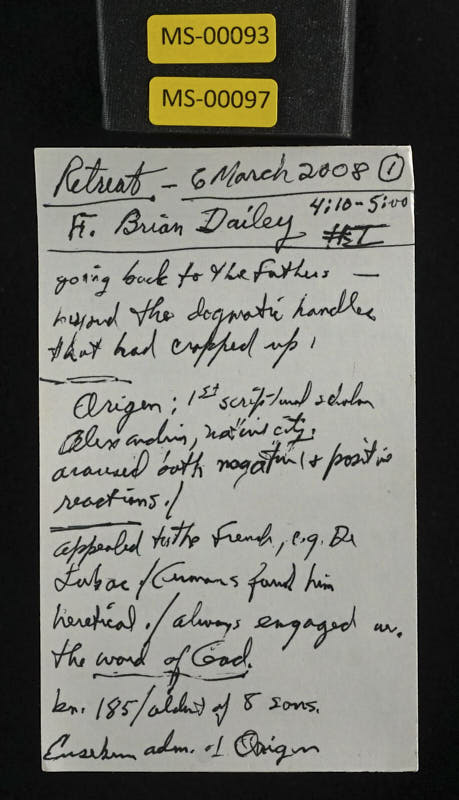 MS-00093
MS-00097
Retreat – 6 March 2008 ①
4:10-5:00
Fr. Brian Dailey
going back to the Fathers —
beyond the dogmatic handles
that had cropped up.
Origen: 1st scriptural scholar
Alexandria, native city.
aroused both negative & positive
reactions./
appealed to the French, e.g. De
Lubac / Germans found him
heretical. / always engaged w.
the word of God.
bn. 185/oldest of 8 sons.
adm. of Origen